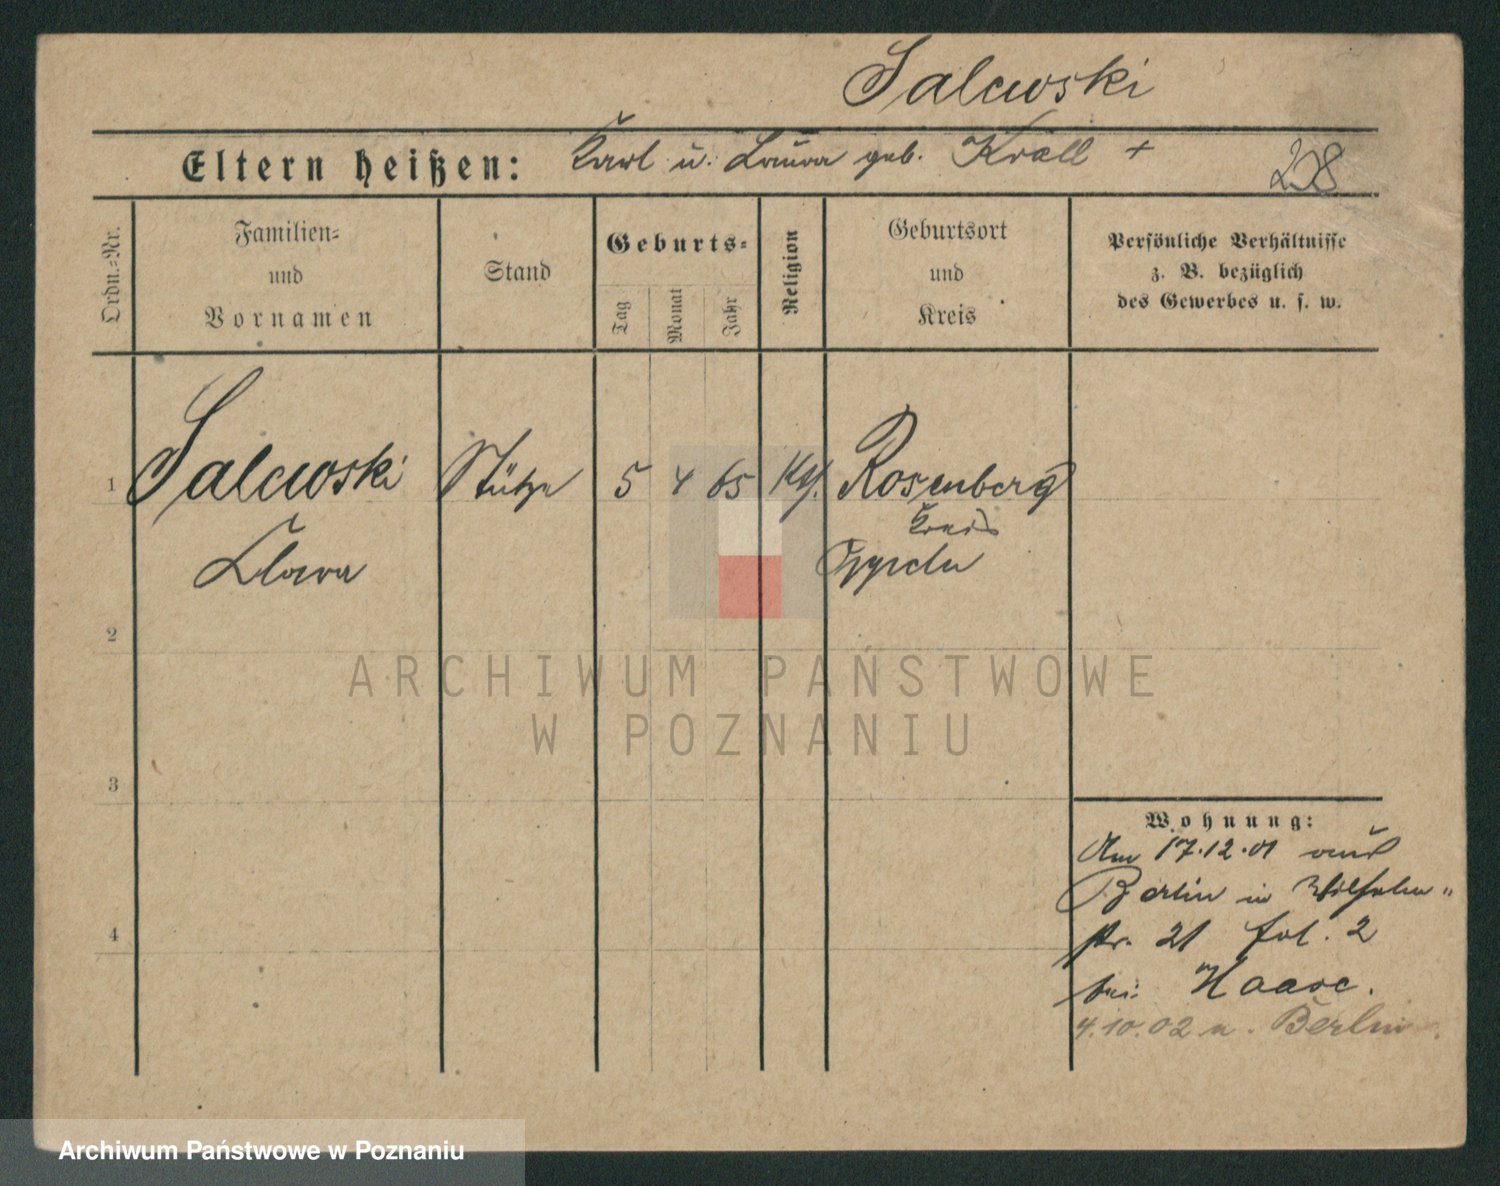 Salewski
Eltern heißen: Karl u. Laura geb. Kräll +
208
Ordn.-Nr.
Familien-
und
Vornamen
Stand
Geburts-
Tag
Monat
Jahr
Religion
Geburtsort
und
Kreis
Persönliche Verhältnisse
z. B. bezüglich
des Gewerbes u. s. w.
1
Salewski
Stütze
5 4 65
Kth.
Rosenberg
Kreis
Oppeln
Clara
2
3
4
ARCHIWUM PAŃSTWOWE
W POZNANIU
Wohnung:
Am 17.12.01 aus
Berlin in Wilhelm-
str. 21 fol. 2
bei Haase.
4.10.02 n. Berlin.
Archiwum Państwowe w Poznaniu